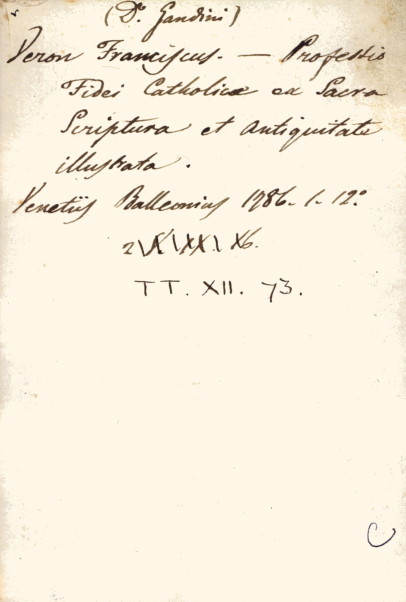 (Dr. Gandini)
Veron Franciscus. — Professio
Fidei Catholicæ ex Sacra
Scriptura et Antiquitate
illustrata.
Venetiis Balleonius 1786. 1. 12º
TT. XII. 73.
C